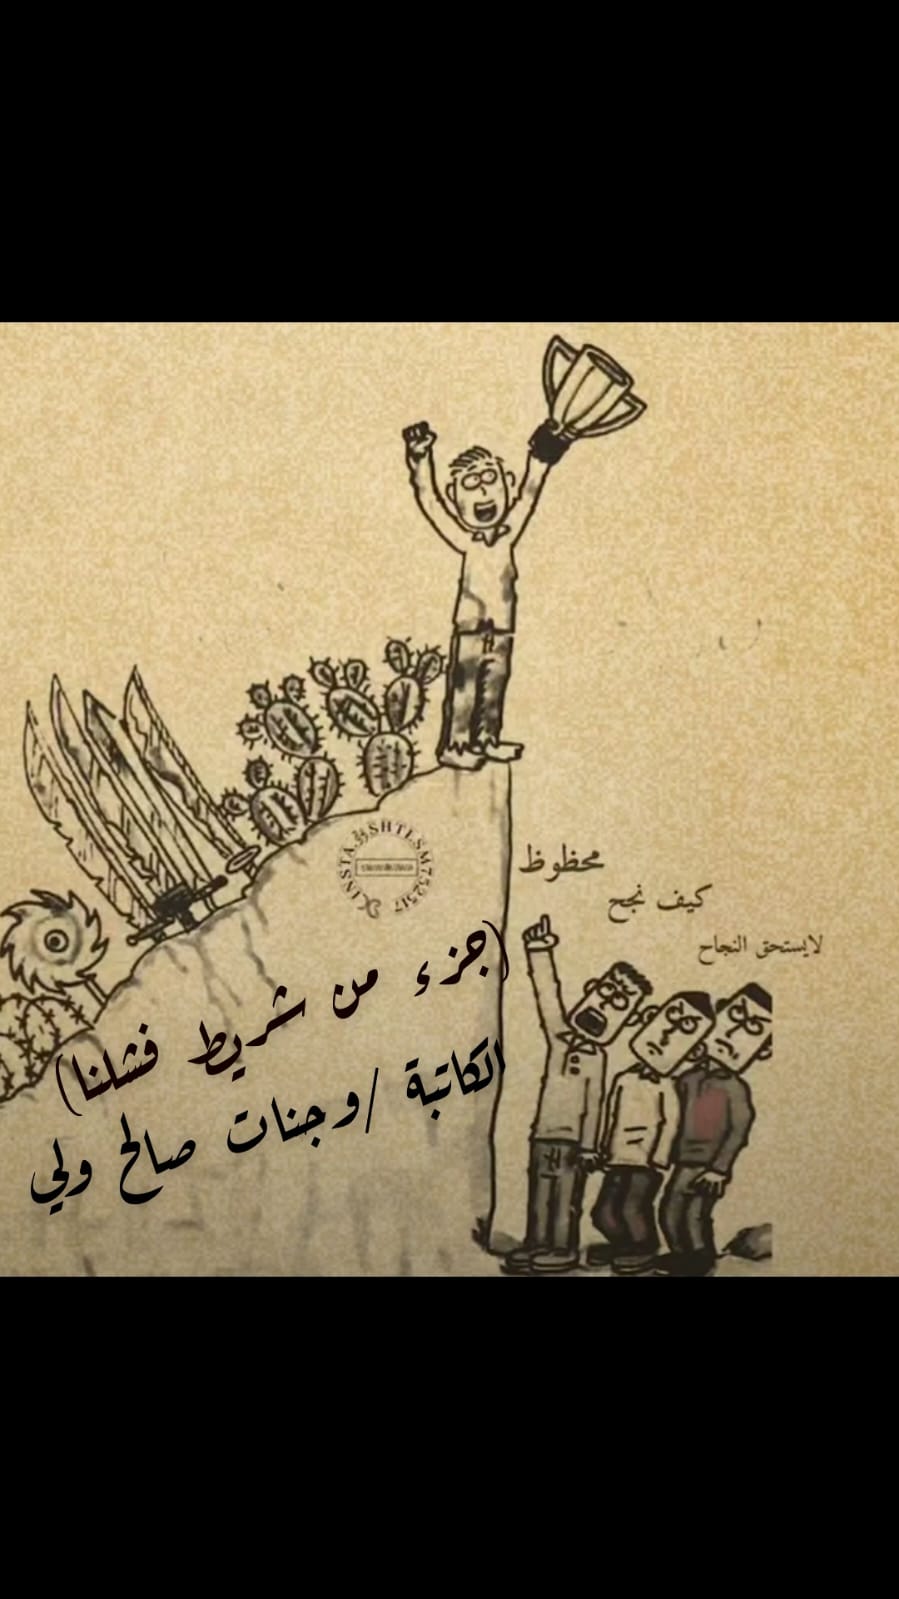 محظوظ
كيف نجح
لايستحق النجاح
(جزء من شريط فشلنا)
الكاتبة /وجنات صالح ولي